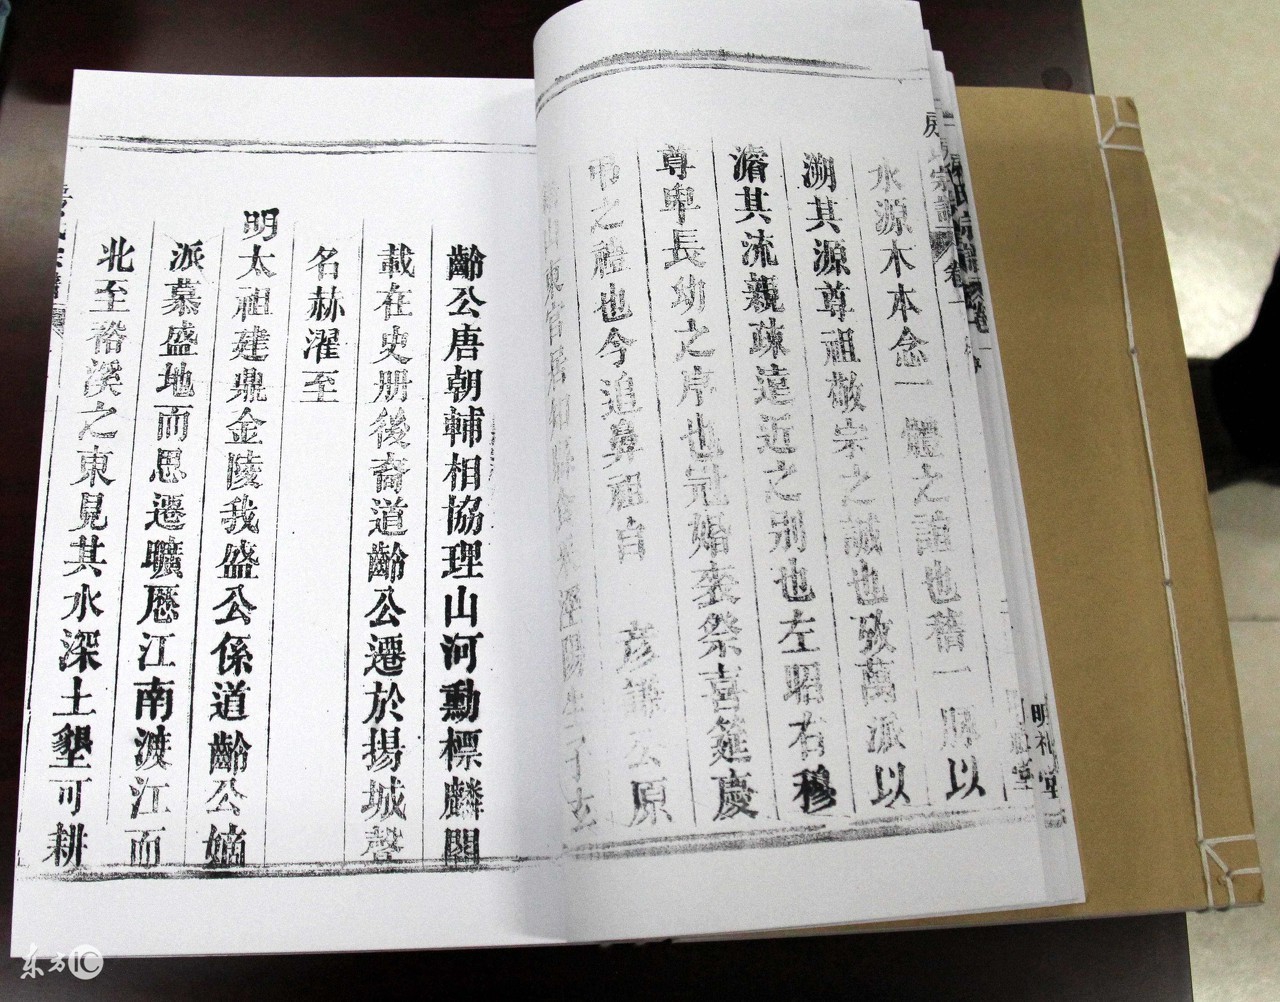 水源木本念一體之誼也藉一脈以
溯其源尊祖敬宗之誠也攷萬派以
濬其流親疎遠近之别也左昭右穆
尊卑長幼之序也冠婚喪祭喜筵慶
弔之禮也今追鼻祖自 彦謙公原
山東
齡公唐朝輔相協理山河勳標麟閣
載在史册後裔道齡公遷於揚城聲
名赫濯至
明太祖建鼎金陵我盛公係道齡公嫡
派慕盛地而思遷曠愿江南渡江而
北至裕溪之東見其水深土墾可耕
卷一
明禮堂
东方IC